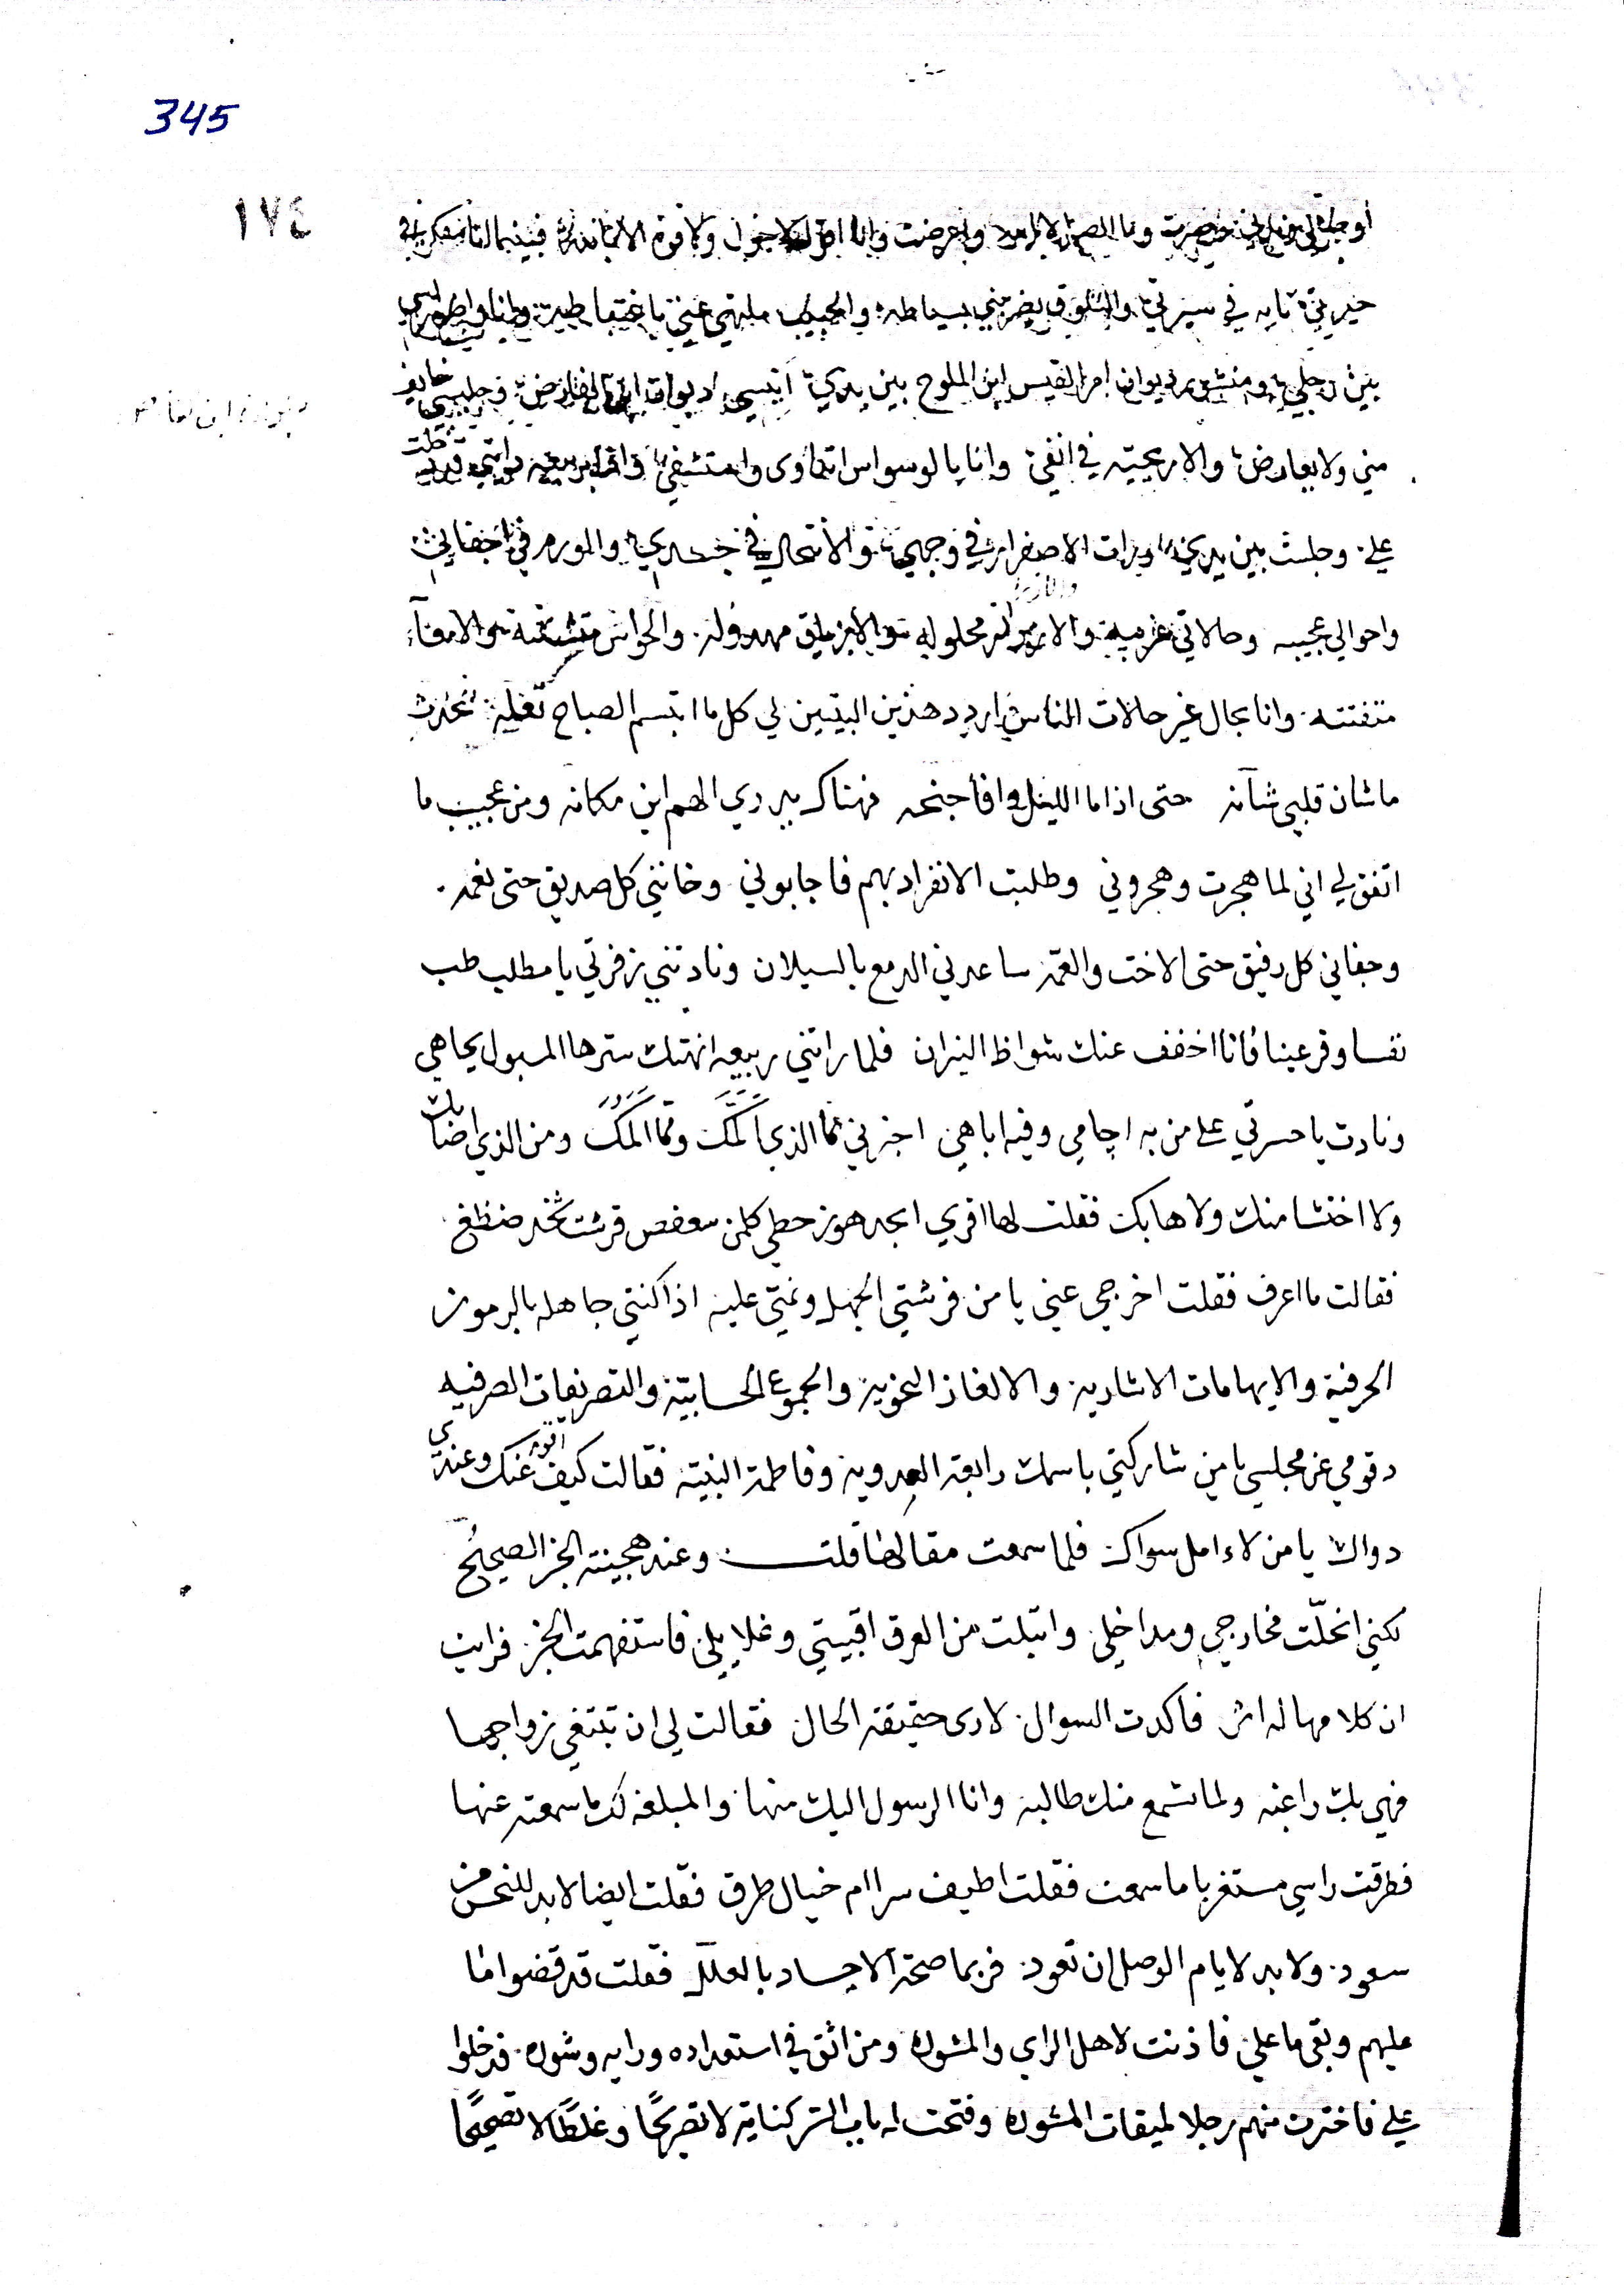 345
١٧٤
فبينما انا مفكر في
حيرتي تايه في سيرتي والشوق يضربني بسياطه
بين رجلي ومنشور ديوان امرا القيس ابن الملوح بين يدي انيسي ديوان ابن الفارض وجليسي خايف
مني ولا يعارض والاريحيته في انفي وانا بالوسواس اتداوى واستشفي واذا بربيعه دايتي قد دخلت
علي وجلست بين يدي ورات الاصفرار في وجهي والانتحال في جسدي والورم في اجفاني
واحوالي عجيبه وحالاتي غريبة محلوله والاباريق مهدوله والحواس متشتته والامعآء
متفتته وانا بحال غير حالات الناس اردد هذين البيتين لي كل ما ابتسم الصباح تحدث
ما شان قلبي شآنه حتى اذا ما الليل وافا جنحه فهناك يدري الهم اين مكانه ومن عجيب ما
اتفق لي اني لما هجرت وهجروني وطلبت الانفراد بهم فاجابوني وخانني كل صديق حتى نعمه
وجفاني كل رفيق حتى الاخت والعمة ساعدني الدمع بالسيلان ونادتني زفرتي يا مطلب طب
نفسا وقر عينا فانا اخفف عنك شواظ النيران فلما راتني ربيعه انهتك سترها المسبول بجاهي
ونادت يا حسرتي على من به احامي وفيه اباهي اخبرني ما الذي ألمّك ومما ألمك ومن الذي اصابك
ولا اختشا منك ولا هابك فقلت لها اقري ابجد هوز حطي كلمن سعفص قرشت ثخذ ضظغ
فقالت ما اعرف فقلت اخرجي عني يا من فرشتي الجهل ونمتي عليه اذا كنتي جاهله بالرموز
الحرفية والايهامات الاشاريه والالغاز النحويه والجموع الحسابية والتصريفات الصرفيه
وقومي عن مجلسي يا من شاركتي باسمك رابعة العدويه وفاطمة النبيته فقالت كيف اقوم عنك وعندي
دواك يا من لا امل سواك فلما سمعت مقالها قلت وعند جهينة الخبر الصحيح
لكني انحلّت مخارجي ومداخلي وابتلت من العرق اقبيتي وغلايلي فاستفهمت الخبر فرايت
ان كلامها له اثر فاكدت السوال لارى حقيقة الحال فقالت لي ان تبتغي زواجها
فهي بك راغبه ولما تسمع منك طالبه وانا الرسول اليك منها والمبلغه لك ما سمعته عنها
فطرقت راسي مستغربا ما سمعت فقلت اطيف سرا ام خيال طرق فقلت ايضا لا بد للنحس من
سعود ولا بد لايام الوصل ان تعود فربما صحة الاجساد بالعلل فقلت قد قضوا ما
عليهم وبقي ما علي فاذنت لاهل الراي والمشوره ومن اثق في استعداده ورايه وشوره فدخلوا
علي فاخترت منهم رجلا لميقات المشوره وفتحت له باب السر كناية لا تصريحًا وغلطًا لا تصحيحًا